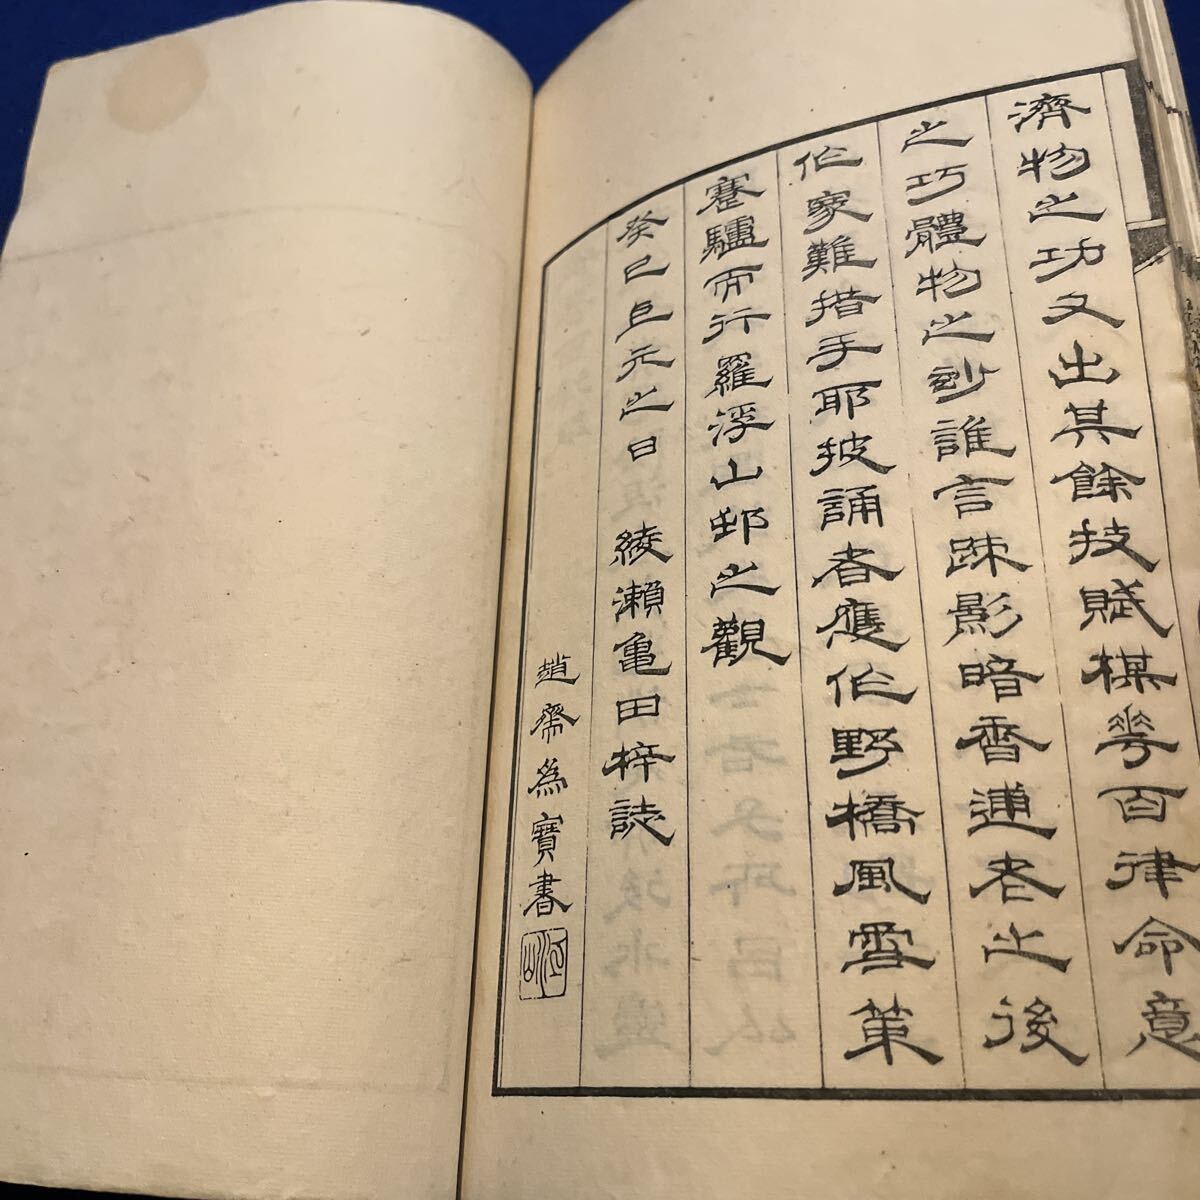 濟物之功又出其餘技賦楳花百律命意
之巧體物之妙誰言疎影暗香逋老之後
作家難措手耶披誦者應作野橋風雪策
蹇驢而行羅浮山邨之觀
癸巳且元之日 綾瀨亀田梓誌
趙齋為寶書